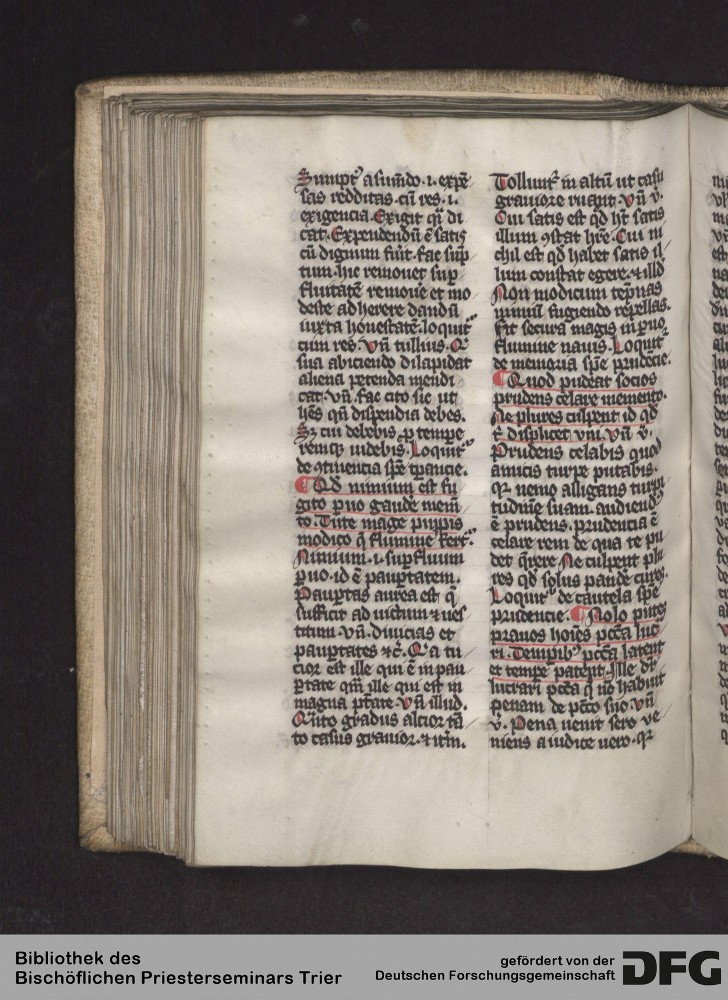 Sumpt᷒ a sumēdo .i. expē
sas redditas. cū res .i.
exigencia. Exigit qn̄ di
cat. Expendendū ē satis
cū dignum fūit. fac sūp
tum. hic remouet sup
fluitatē remouē et mo
deste adherere dandū
iuxta honestatē. loquit᷒
cum res. Vn̄ tullius. Q̄
sua abiciendo dilapidat
aliena petenda mendi
cat. Vn̄. fac cito sic ut
hēs qn̄ dispendia debes.
Sꝫ cui debebis ꝑ tempe
remqꝫ uidebis. Loquit᷒
de ꝯtinencia spē tꝑancie.
¶ Qd̄ nimium est fu
gito ꝑuo gaude mem̄
to. Tute mage pupis
modico q̄ flumine fert᷒.
Nimium .i. supfluum
ꝑuo. id ē pauꝑtatem.
Pauꝑtas aurea est q̄
sufficit ad uictum ⁊ ues
titum. vn̄. diuicias et
pauꝑtates ⁊c̄. Q̄a tu
cior est ille qui ē in pau
ꝑtate qm̄ ille qui est in
magna ptāte. Vn̄ illud.
Quāto gradus alcior tā
to casus grauior. ⁊ itm̄.
Tollunt᷒ in altū ut casu
grauiore ruant. Vn̄ v̄.
Cui satis est qd̄ hꝫ satis
illum ꝯstat hr̄e. Cui ni
chil est qd̄ habet satis il
lum constat egere. ⁊ illd̄
Non modicum tēpnas
nimiū fugiendo repellas.
fit secura magis in ꝑuo
flumine nauis. Loquit᷒
de memoria spē prudēcie.
¶ Quod pudeat socios
prudens celare memento.
Ne plures culpent id qd̄
t̄ displicet vni. Vn̄ v̄.
Prudens celabis quod
amicis turpe putabis.
qꝛ nemo alligans turpi
tudinē suam. audiend᷒
ē prudens. prudencia ē
celare rem de qua te pu
det q̄rere. Ne culpent plu
res qd̄ solus pande cures.
Loquit᷒ de cautela spē
prudencie. ¶ Nolo putes
prauos hoīes pctā luc
ri. Tempibꝫ pctā latent
et tempe patent. Ille dr̄
lucrari pctā q̄ nō habuit
penam de pctō suo. Vn̄
v̄. Pena uenit sero ve
niens a iudice uero. qꝛ
Bibliothek des
Bischöflichen Priesterseminars Trier
gefördert von der
Deutschen Forschungsgemeinschaft
DFG